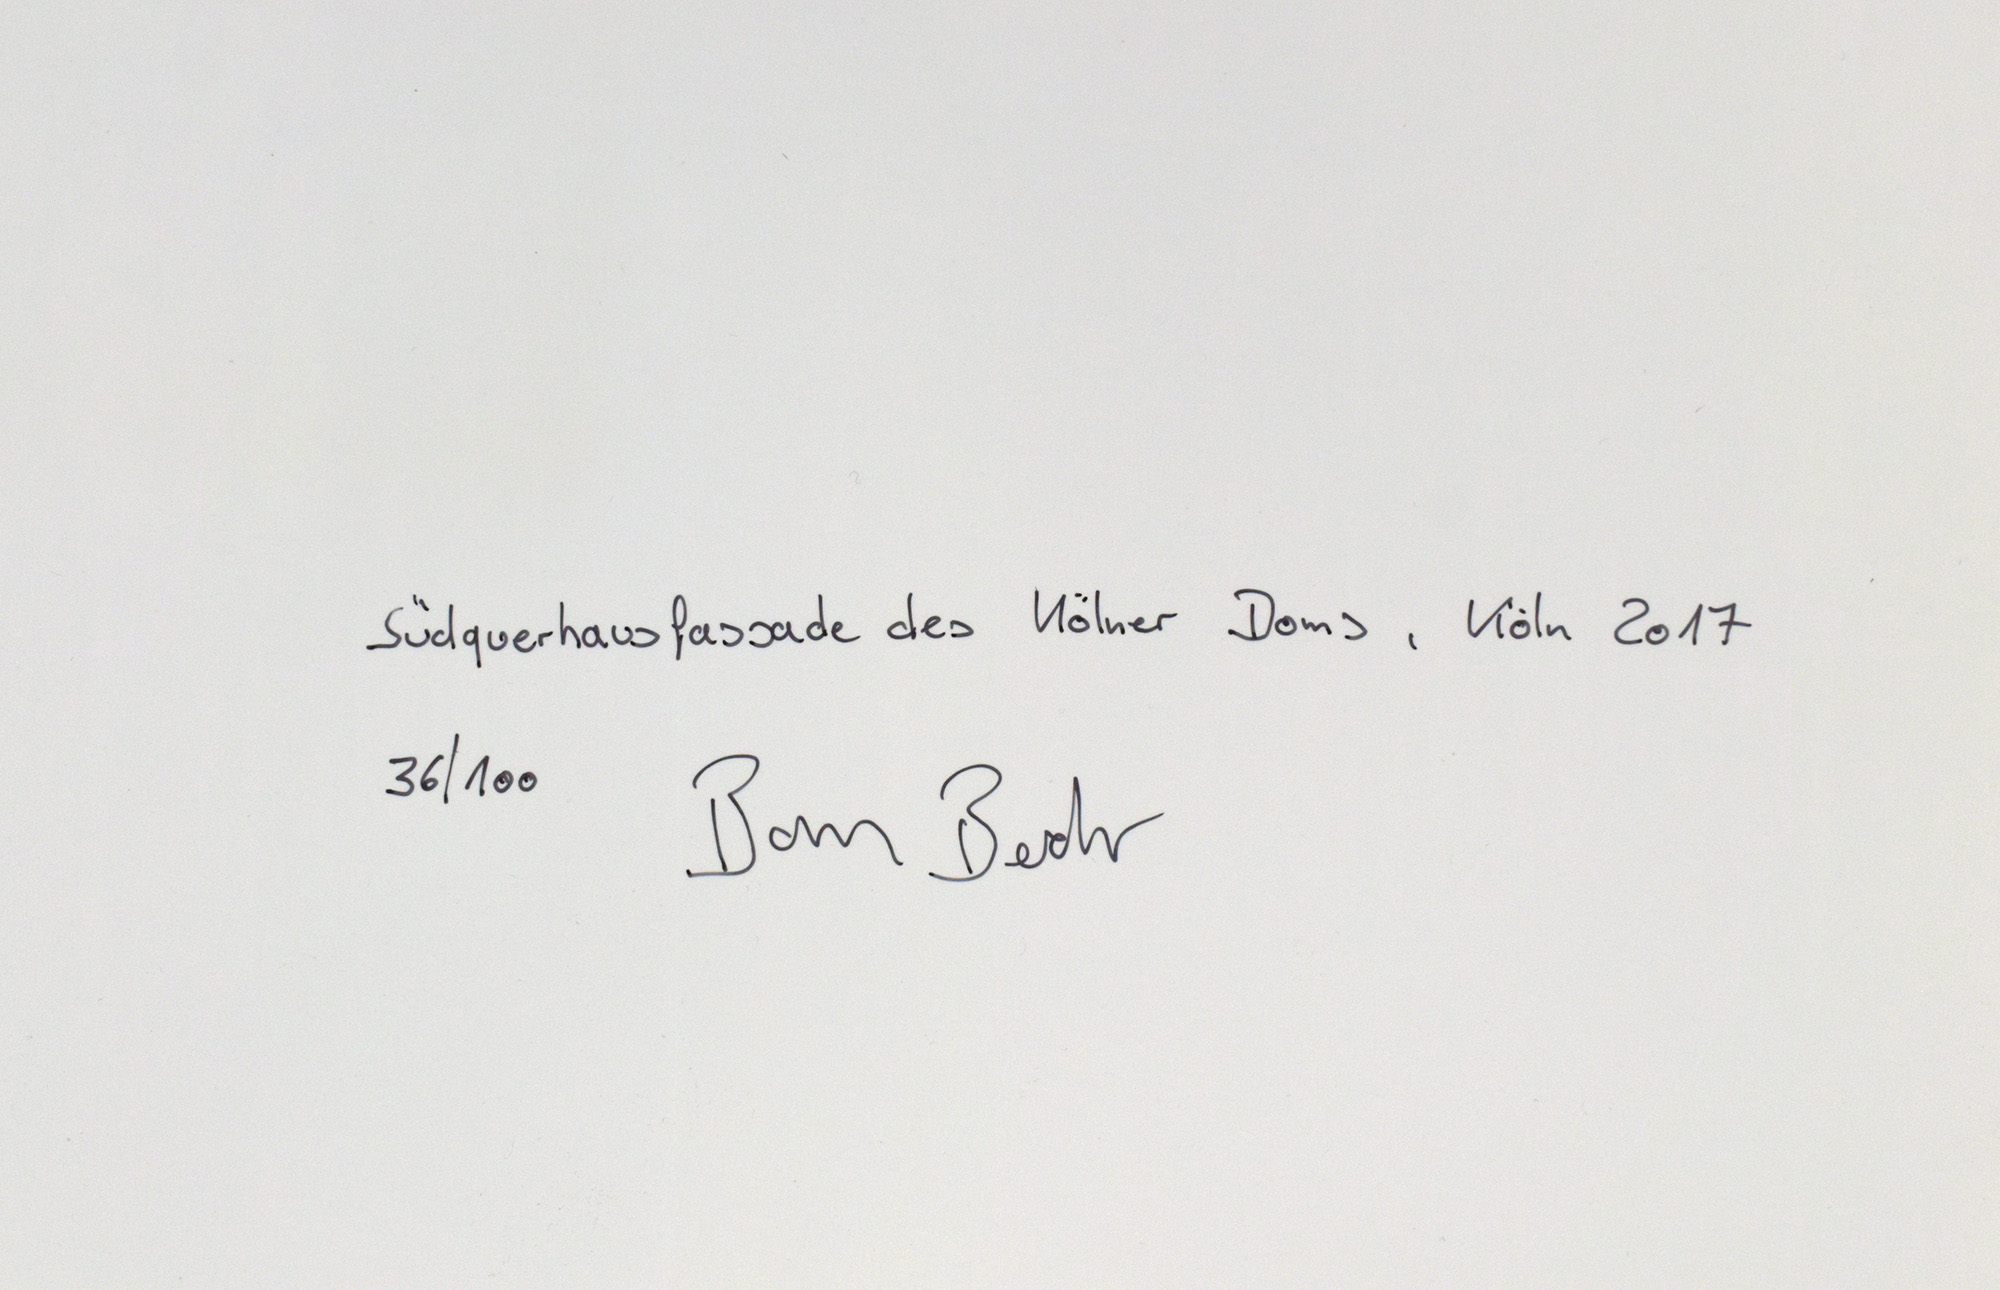 Südquerhausfassade des Kölner Doms, Köln 2017
36/100